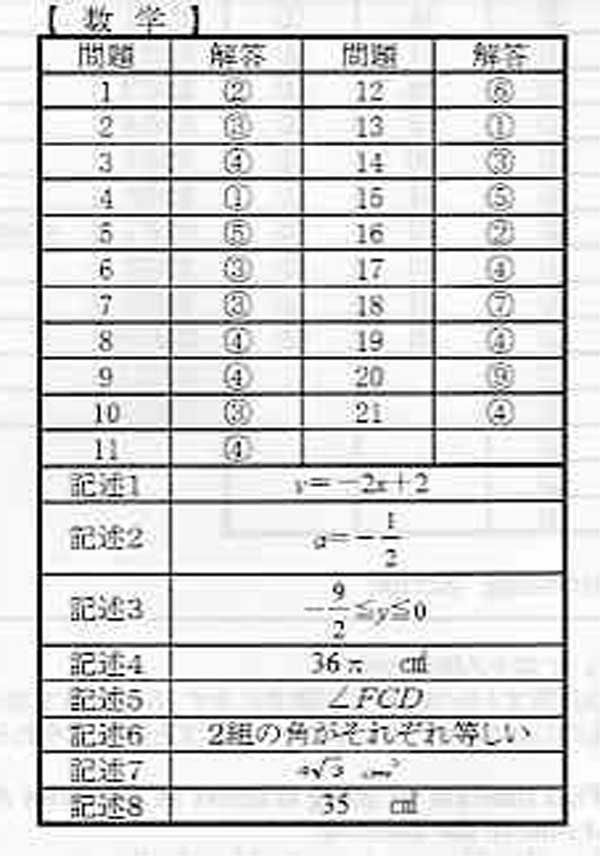 【 数 学 】
問題 解答 問題 解答
1 ② 12 ⑥
2 ③ 13 ①
3 ④ 14 ③
4 ① 15 ⑤
5 ⑤ 16 ②
6 ③ 17 ④
7 ③ 18 ⑦
8 ④ 19 ④
9 ④ 20 ⑨
10 ③ 21 ④
11 ④
記述1 y=-2x+2
記述2 a=-1/2
記述3 -9/2≦y≦0
記述4 36π ㎠
記述5 ∠FCD
記述6 2組の角がそれぞれ等しい
記述7
記述8 35 ㎠